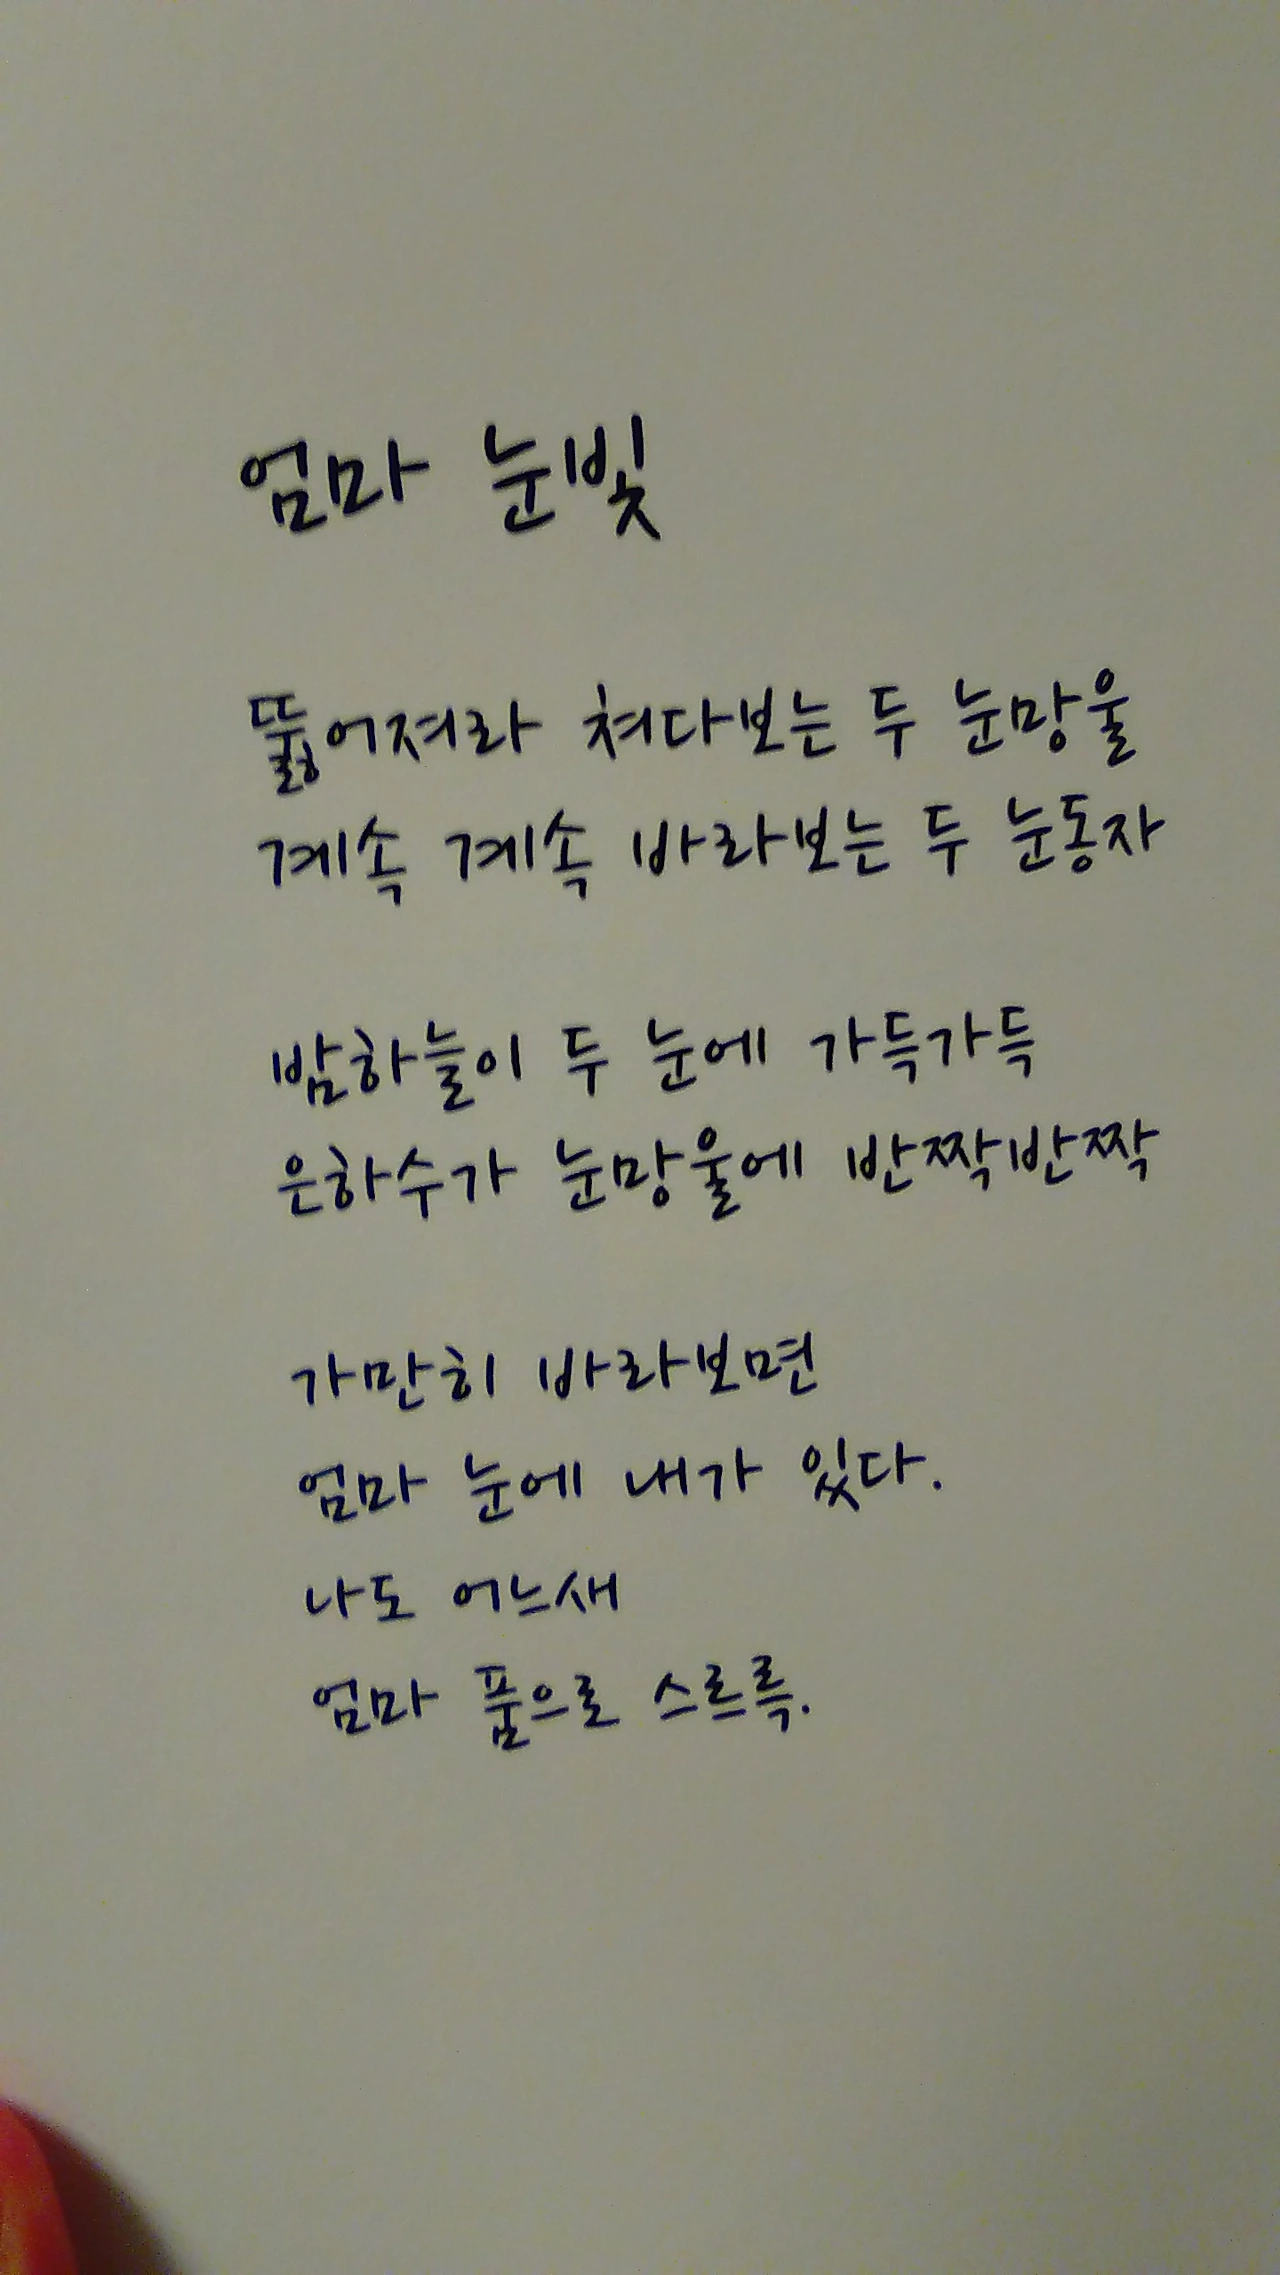 엄마 눈빛
뚫어져라 쳐다보는 두 눈망울
계속 계속 바라보는 두 눈동자
밤하늘이 두 눈에 가득가득
은하수가 눈망울에 반짝반짝
가만히 바라보면
엄마 눈에 내가 있다.
나도 어느새
엄마 품으로 스르륵.